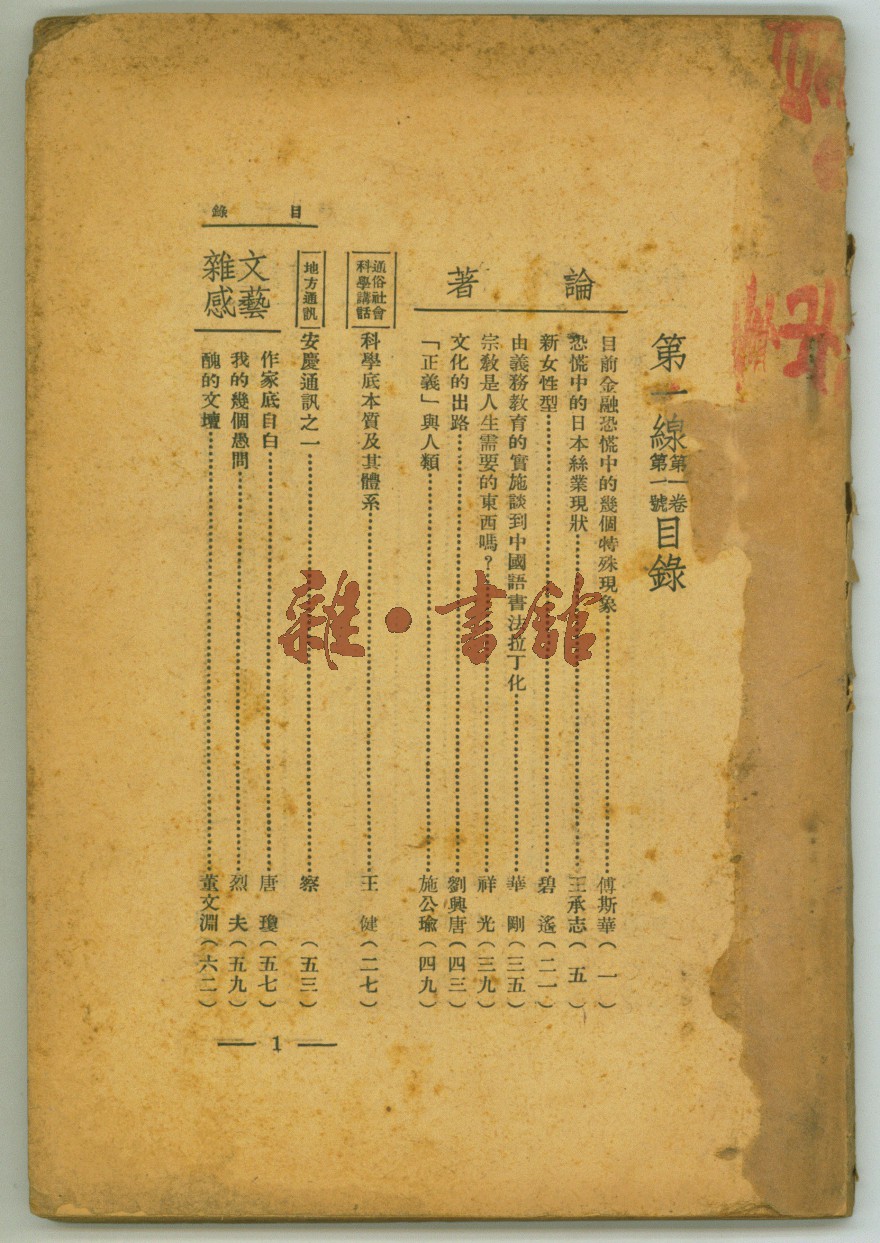 目錄
第一線 第一卷 第一號 目錄
論著
目前金融恐慌中的幾個特殊現象……傅斯華(一)
恐慌中的日本絲業現狀……王承志(五)
新女性型……碧遙(二一)
由義務教育的實施談到中國語書法拉丁化……華剛(三五)
宗教是人生需要的東西嗎?……祥光(三九)
文化的出路……劉興唐(四三)
「正義」與人類……施公瑜(四九)
通俗社會科學講話
科學底本質及其體系……王健(二七)
地方通訊
安慶通訊之一……察(五三)
文藝雜感
作家底自白……唐瓊(五七)
我的幾個愚問……烈夫(五九)
醜的文壇……董文淵(六二)
1
雜·書館